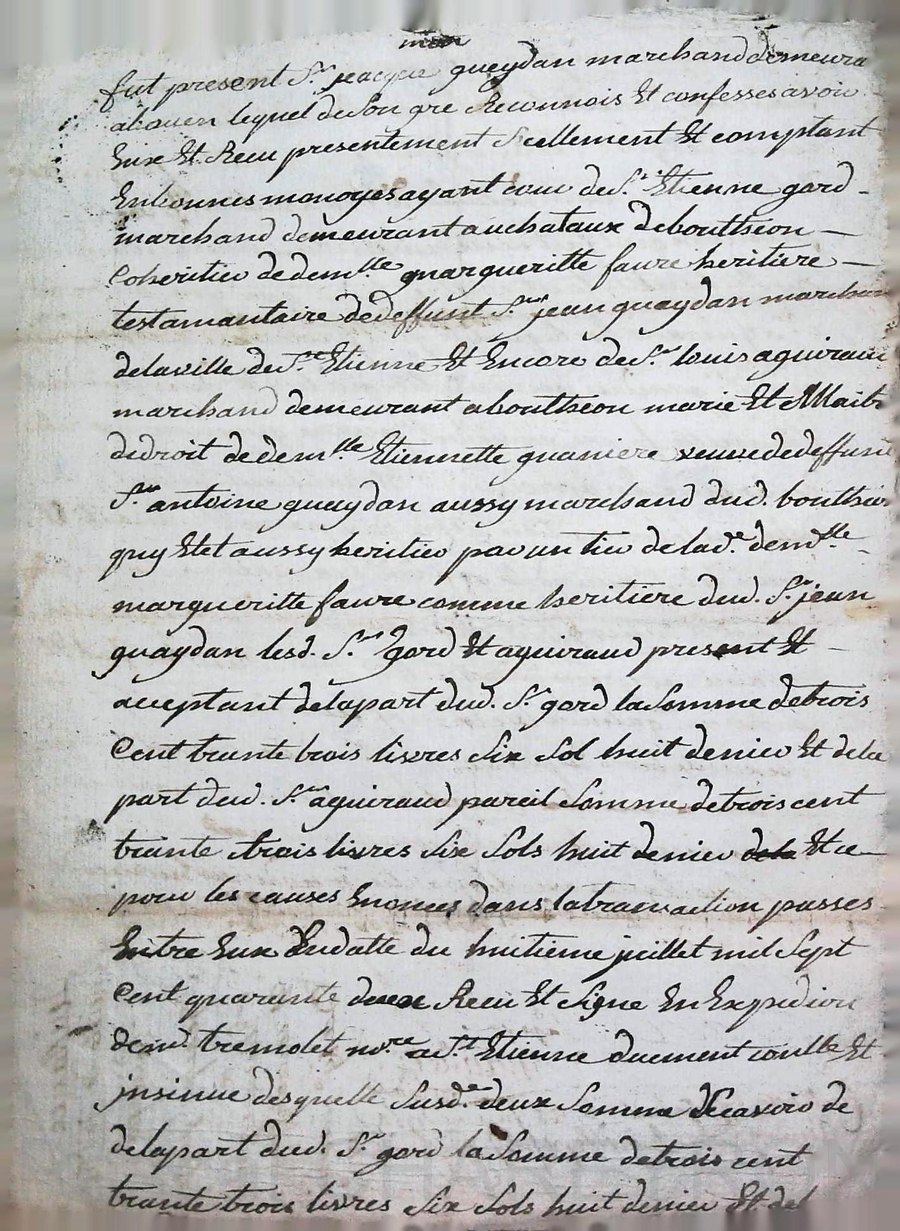 fut present Sr. jeacque gueydan marchand demeura
lequel de son gre Reconnois Et confesses avoir
Eux Et Receu presentement Reellement Et comptant
En bonnes monoyes ayant cour de Sr. Etienne gord
marchand demeurant au chataux de boutheon
Coheritier de demlle margueritte faure heritiere
testamantaire de deffunt Sr. jean guaydan marchan
de la ville de St. Etienne Et Encore de Sr. louis aguiraud
marchand demeurant a boutheon marie Et Maitr
de droit de demlle Etiennette graniere veuve de deffun
Sr. antoine guaydan aussy marchand dud. bouthion
quy Etet aussy heritier pour un tier de lade. demlle
margueritte faure comme heritiere dud. Sr. jean
guaydan lesd. Srs. gord Et aguiraud present Et
acceptant de la part dud. Sr. gord la somme de trois
Cent trante trois livres six sol huit denier Et de la
part dud. Sr. aguiraud pareil somme de trois cent
trante trois livres six sols huit denier Et ce
pour les causes Enonces dans la transaction passes
Entre Eux En datte du huitieme juillet mil sept
Cent quarante deux Receu Et signe En Expedion
tremolet nore. a St. Etienne duement conlle Et
insinue desquelle susde. deux somme Scavoir de
de la part dud. Sr. gord la somme de trois cent
trante trois livres six sols huit denier Et del